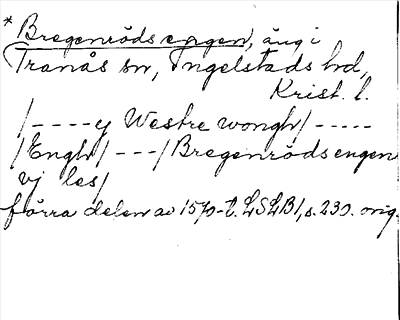 * Bregenrödsengen, äng i
Tranås sn, Ingelstads hd,
Krist. l.
/----y Westre wongh/-----
/Engh/---/Bregenrödsengen
vj les/
förra delen av 1570-t. LSLB1, s. 230. orig.